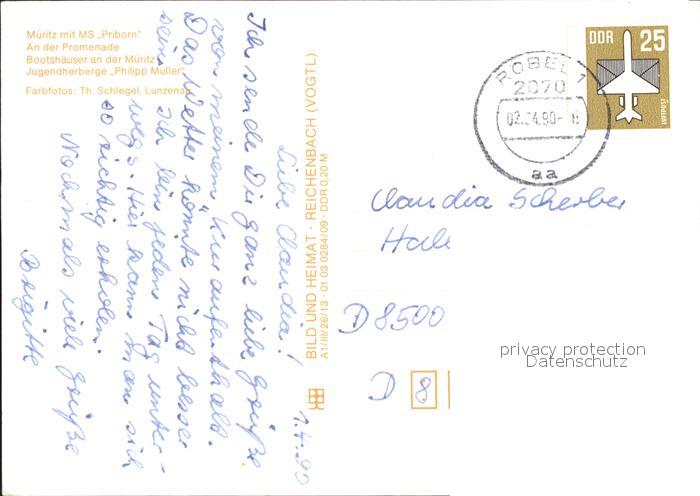 Müritz mit MS „Priborn"
An der Promenade
Bootshäuser an der Müritz
Jugendherberge „Philipp Müller"
Farbfotos: Th. Schlegel, Lunzenau
1.4.90
Liebe Claudia!
Ich sende Dir ganz liebe Grüße
von meinem Kuraufenthalt.
Das Wetter könnte nicht besser
sein. Ich bin jeden Tag unter-
wegs. Hier kann man sich
so richtig erholen.
Nochmals viele Grüße
Brigitte
BILD UND HEIMAT · REICHENBACH (VOGTL)
A1/III/26/13 · 01 03 0284/09 · DDR 0,20 M
DDR 25
LUFTPOST
RÖBEL 1
2070
02.04.90-
aa
Claudia Scherber
D 8500
D 8
privacy protection
Datenschutz